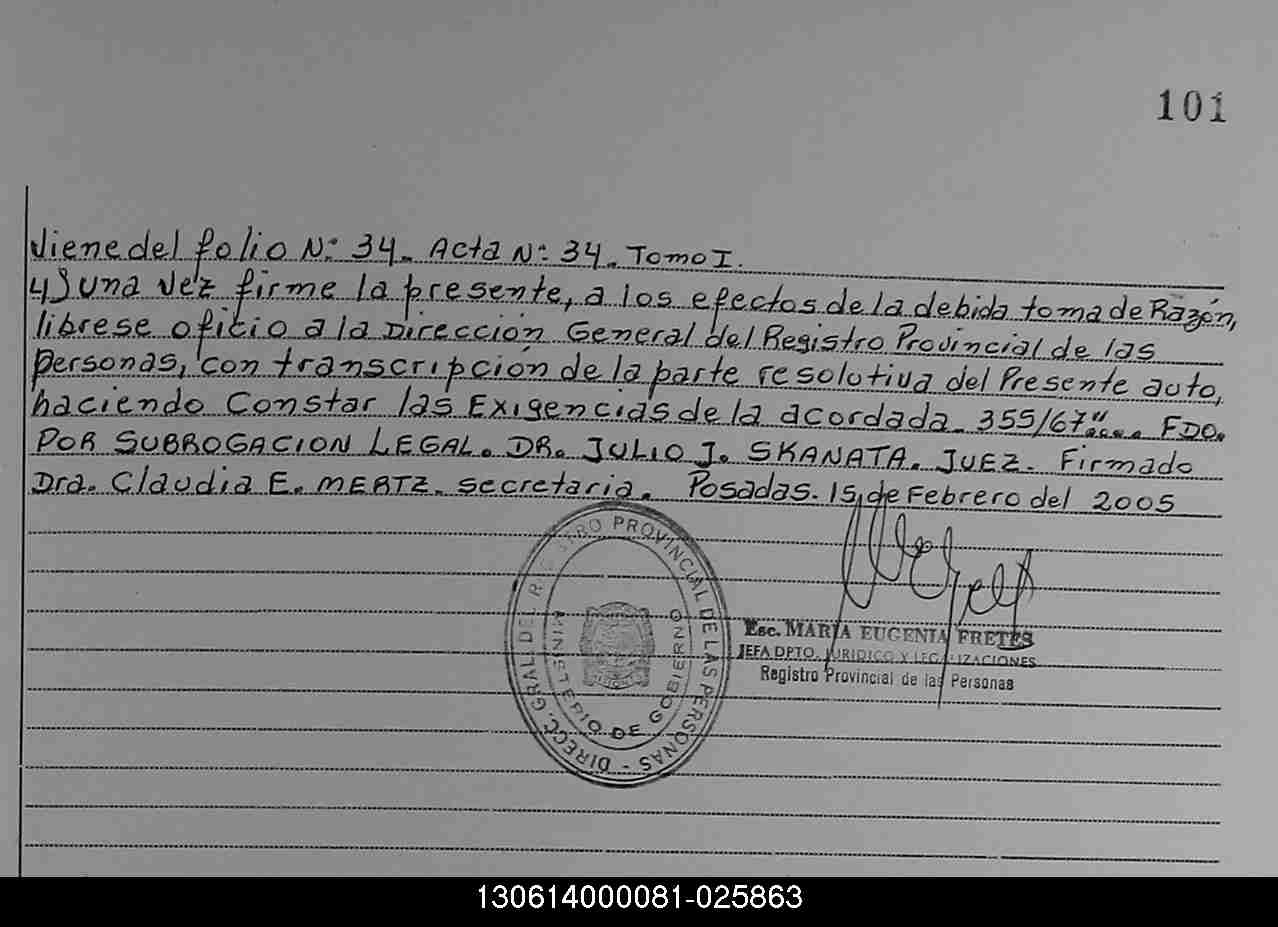 101
Viene del folio N: 34. Acta N: 34. Tomo I.
4) una vez firme la presente, a los efectos de la debida toma de Razón,
librese oficio a la Dirección General del Registro Provincial de las
personas, con transcripción de la parte resolutiva del Presente auto,
haciendo Constar las Exigencias de la acordada. 355/67".... FDO.
POR SUBROGACION LEGAL. DR. JULIO J. SKANATA. JUEZ. Firmado
Dra. Claudia E. MERTZ. secretaria. Posadas. 15, de Febrero del 2005
DIRECC. GRAL. DEL REGISTRO PROVINCIAL DE LAS PERSONAS -
MINISTERIO DE GOBIERNO
Esc. MARIA EUGENIA FRETES
JEFA DPTO. JURIDICO Y LEGALIZACIONES
Registro Provincial de las Personas
130614000081-025863